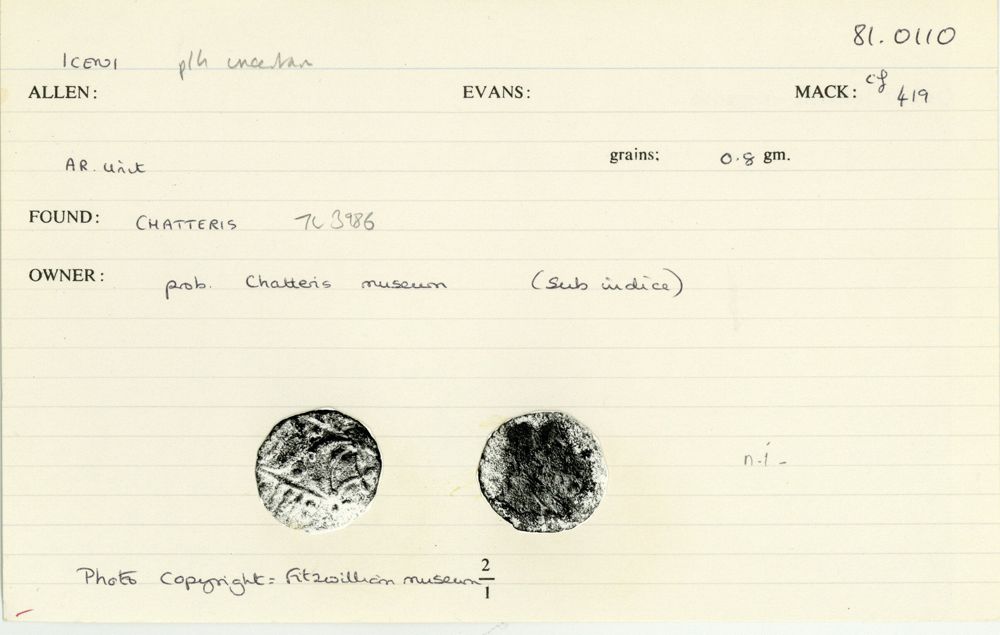 81.0110
ICENI plh uncertain
ALLEN: EVANS: MACK: cf 419
AR. Unit grains: 0.8 gm.
FOUND: CHATTERIS TL 3986
OWNER: prob. Chatteris museum (Sub indice)
n.i.
Photo Copyright = Fitzwilliam museum 2/1